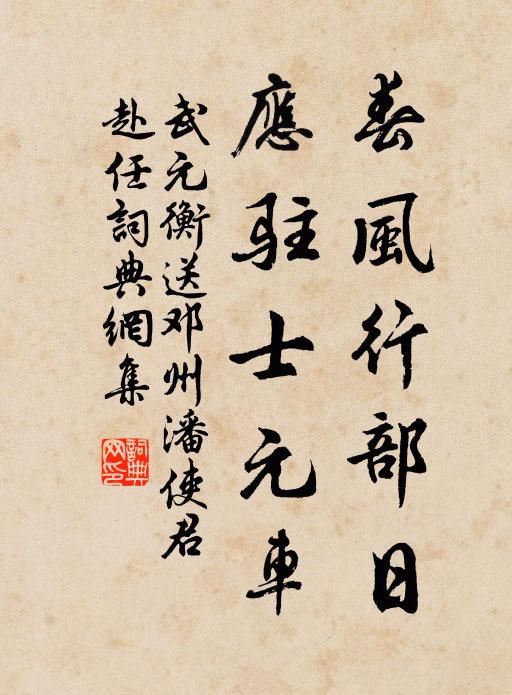 春風行部日
應駐士元車
武元衡送邓州潘使君
赴任詞典網集
詞典
网印